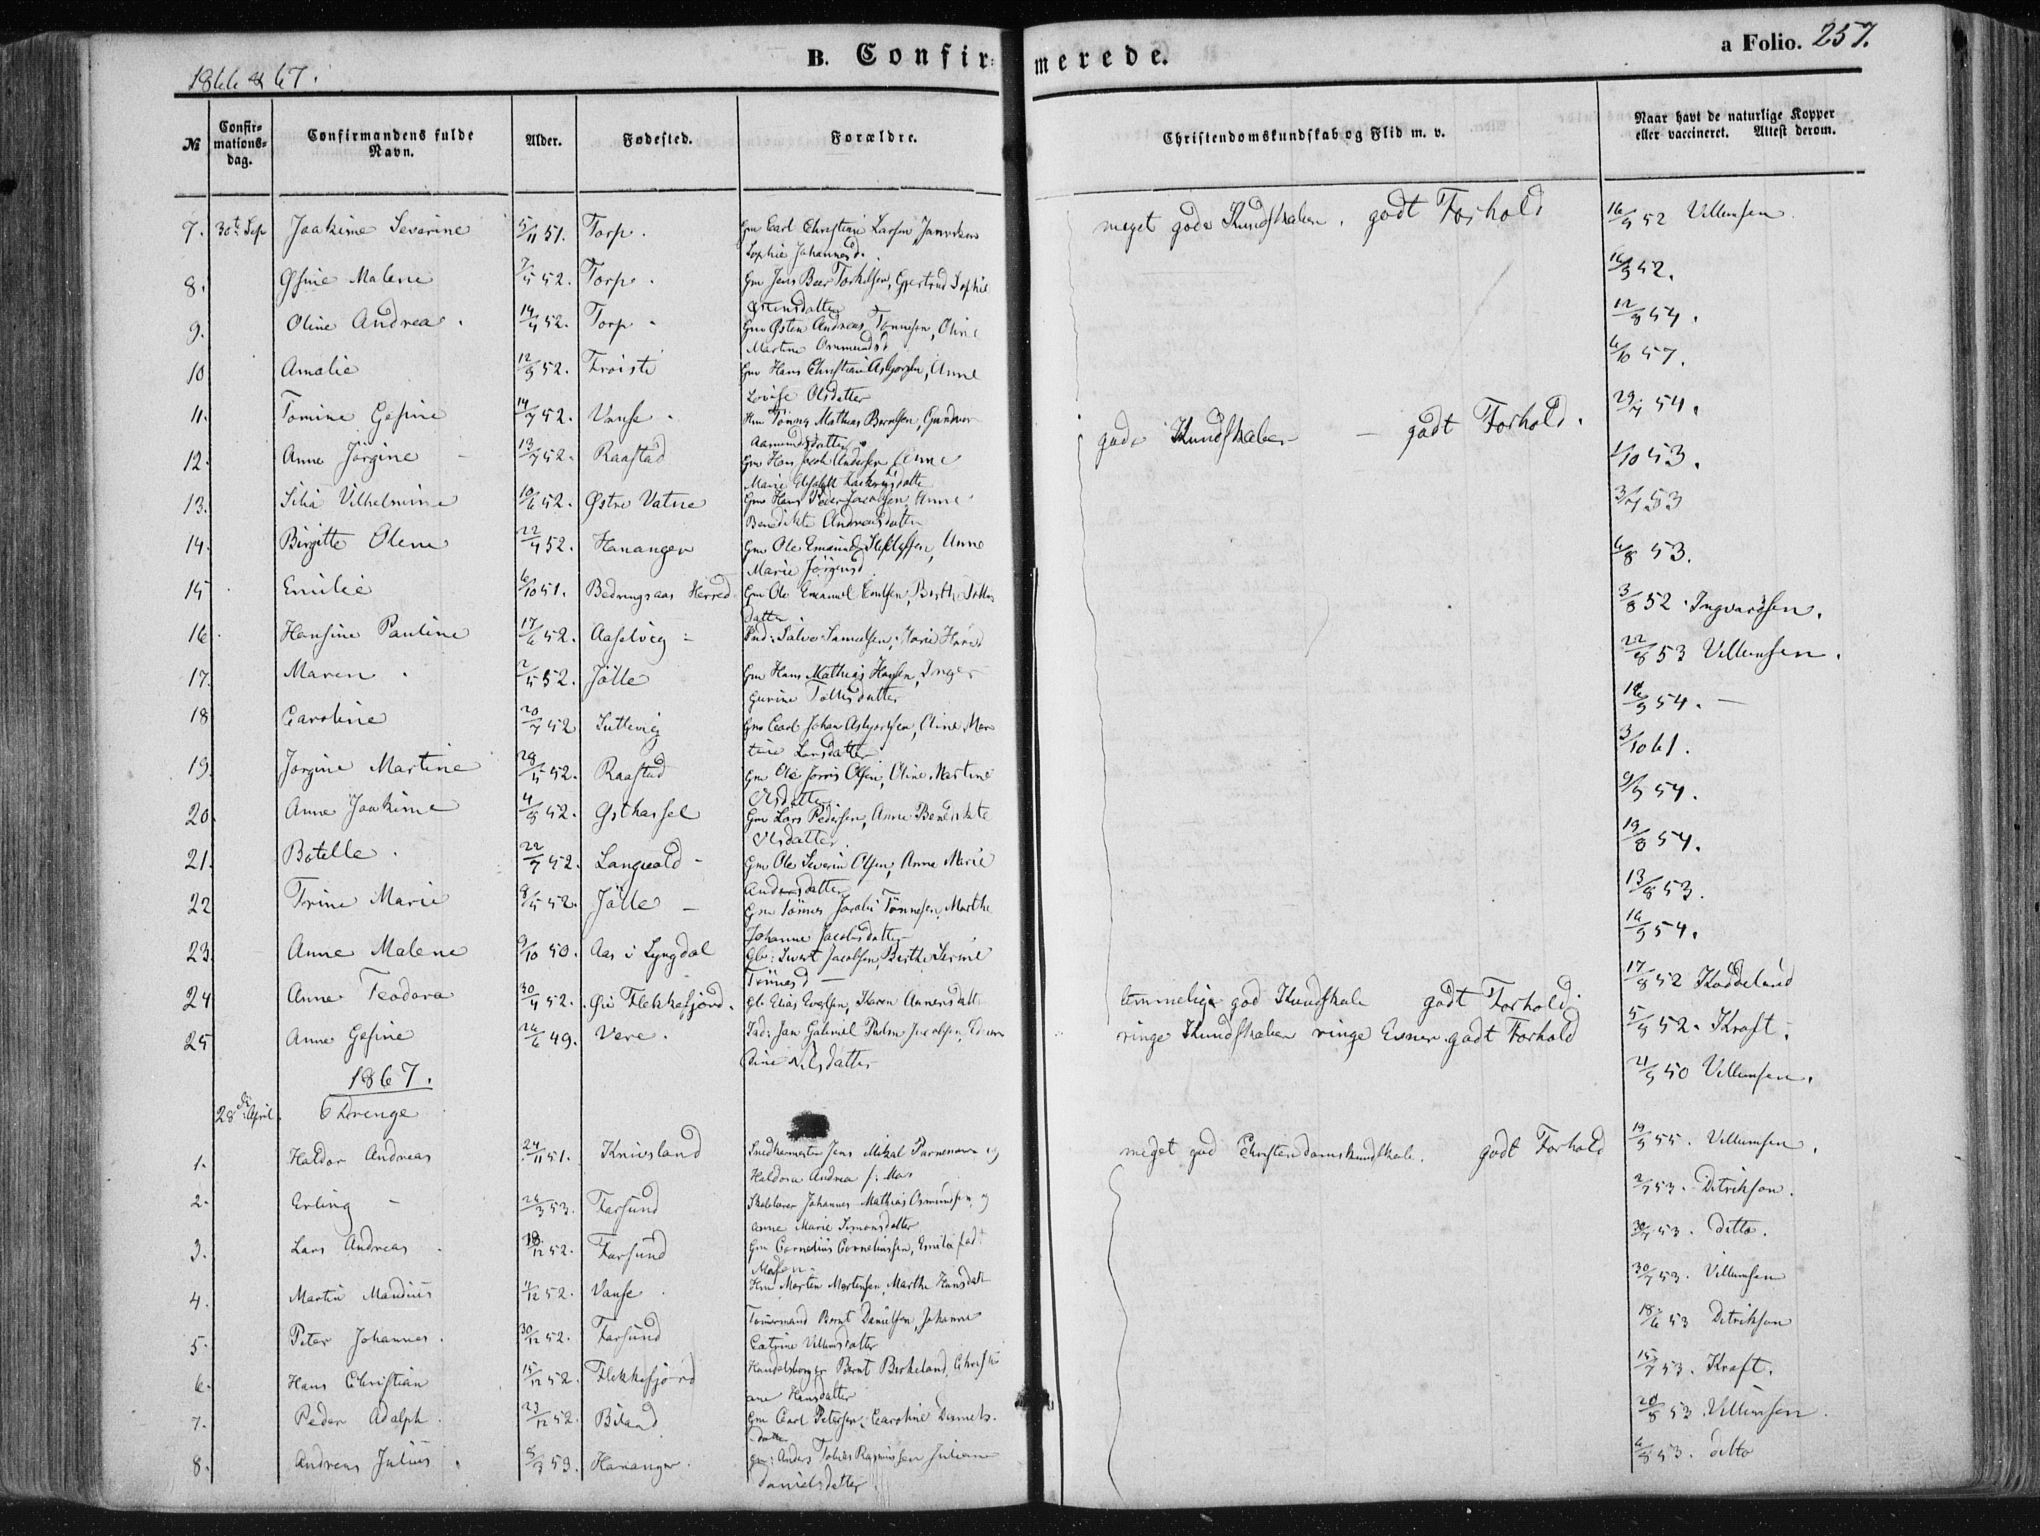 1866 & 67.
B. Confir= merede.
a Folio. 257.
№
Confir=
mations=
dag.
Confirmandens fulde
Navn.
Alder.
Fødested.
Forældre.
Christendomskundskab og Flid m. v.
Naar havt de naturlige Kopper
eller vaccineret. Attest derom.
7. 30te Sep Joakime Severine 5/11 51. Torp. Gm Carl Christian Larsen,
Sophie Johannesd. meget gode Kundskaber. godt Forhold 16/9 52 Villumsen.
8. Gsine Malene 7/5 52. Torp. Gm Jens Beer Torkelsen, Gjertrud Sophie
Østensdatter 16/9 52.
9. Oline Andrea. 14/4 52. Torp. Gm Østen Andreas Tønnesen, Oline
Martine Ommundsd 12/9 54.
10 Amalie 12/9 52. Froisti Gm Hans Christian Asbjørsen, Anne
Lovise Olsdatter 6/10 57.
11. Tomine Gesine 14/7 52. Vanse. Hm Tønnes Mathias Berntsen, Gundvor
Aamundsdatter gode Kundskaber - godt Forhold. 29/7 54.
12. Anne Jörgine 13/7 52. Raastad Gm Hans Jacob Andersen, Anne
Marie Elisabeth 1/10 53.
13. Silia Vilhelmine 10/6 52. Østre Vatne Gm Hans Peder Jacobsen, Anne
Benedikte Andreasdatter 3/7 53
14. Birgitte Olene 22/4 52. Hananger Gm Ole Emanuel, Anne
Marie Jörgensd 6/8 53.
15 Emilie 6/10 51. Herred Gm Ole Emanuel, Berthe
datter. 3/8 52. Ingvardsen.
16. Hansine Pauline 17/6 52. Ind: Salve Samuelsen, 22/8 53 Villumsen.
17. Maren. 2/5 52. Jölle Gm Hans Mathias Hansen, Inger
Gurine Tollisdatter 16/9 54. -
18 Caroline 20/7 52 Luttevig Gm Carl Johan Asbjørnsen, Oline Mar
tine Larsdatter 3/10 61.
19. Jorgine Martine 29/5 52. Raastad Gm Ole Olsen, Oline Martine
Olsdatter 9/9 54.
20. Anne Joakime 4/8 52. Østhassel Gm Lars Pedersen, Anne Benedikte
Olsdatter 19/8 54.
21. Botelle. 22/7 52. Langvold - Gm Ole Severin Olsen, Anna Marie
Andersdatter 13/8 53.
22 Trine Marie 8/5 52. Jölle - Gm Tönnes Jacobi Tønnesen, Marthe
Johanne Jacobsdatter 16/9 54.
23. Anne Malene 9/10 50. Aas i Lyngdal Gb: Sivert Jacobsen, Berthe Serine
Tönnesd - 17/8 52
24 Anne Teodora 30/4 52. Flekkefjord. Gb Elias, Karen temmelige god Kundskab godt Forhold. 5/8 52. Kraft.
25 Anne Gesine 26/6 49. Vere. Ind: Jan Gabriel
Nilsdatter ringe Kundskaber ringe Evner godt Forhold 21/9 50 Villumsen.
1867.
28de April. 6 Drenge
1. Haldor Andreas 24/11 51. Knivsland Snedkermester Jens Mikal og
Haldora Andrea meget god Christendomskundskab. godt Forhold 19/9 55. Villumsen.
2. Erling - 26/3 53. Farsund Johannes Mathias Osmundsen, og
Anne Marie Simonsdatter 2/7 53. Ditrikson.
3. Lars Andreas. 18/12 52. Farsund Gm Cornelius Corneliussen, Emilie fød 30/7 53. ditto.
4. Martin Mandius 1/12 52. Vanse. Hm Morten Mortensen, Marthe Hansdatt 30/7 53. Villumsen
5. Peter Johannes. 30/12 52. Farsund Tömmermand Bernt Danielsen, Johanne
Catrine Villumsdatter 18/6 53 Ditrikson
6. Hans Christian 15/12 52. Flekkefjord Handelsborger Bernt Birkeland, Christi
ane Hansdatter 15/7 53. Kraft.
7. Peder Adolph. 23/12 52. Biland. Gm Carl Petersen, Caroline Daniels
datter 20/8 53. Villumsen.
8. Andreas Julius. 5/3 53. Hananger. Gm: Anders Tobias Rasmussen Juliane
Danielsdatter 6/8 53. ditto